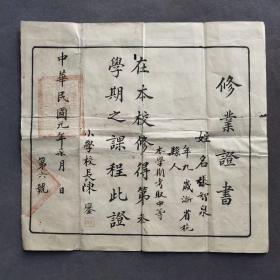 修業證書
姓名張智泉
年九歲浙省杭
縣人
本學期考取中等
在本校修得第叁
學期之課程此證
小學校長陳鋆
中華民國元年 月 日
第六號